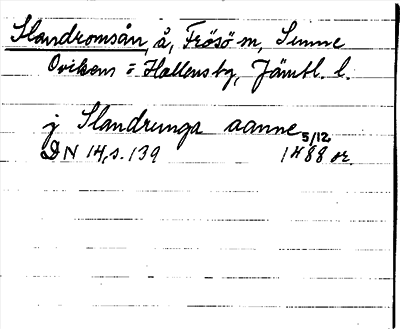 Slandromsån, å, Frösö m, Sunne
Ovikens o Hallens tg, Jämtl. l.
j Slandrunga aanne 5/12
DN 14, s. 139 1488 or.